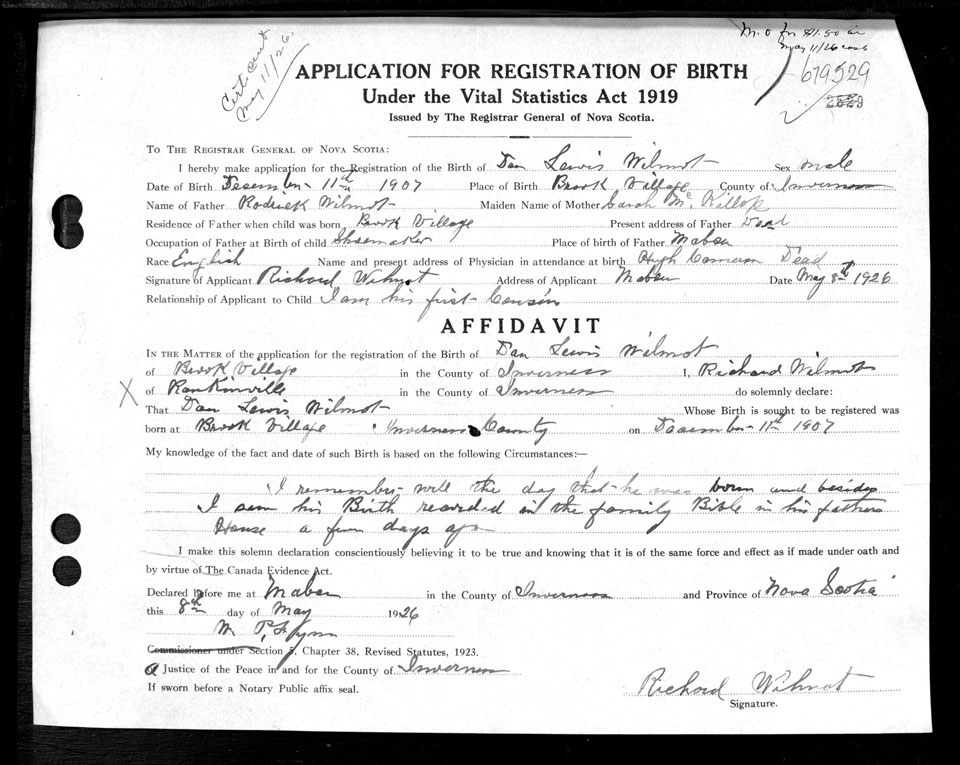 Cert sent
May 11/26.
M.O for $1.50 on
May 11/26
679529
2829
APPLICATION FOR REGISTRATION OF BIRTH
Under the Vital Statistics Act 1919
Issued by The Registrar General of Nova Scotia.
To The Registrar General of Nova Scotia:
I hereby make application for the Registration of the Birth of Dan Lewis Wilmot Sex male
Date of Birth Desember 11th 1907 Place of Birth Brook Village County of Inverness
Name of Father Roderick Wilmot Maiden Name of Mother Sarah McKillop
Residence of Father when child was born Brook Village Present address of Father Dead
Occupation of Father at Birth of child Shoemaker Place of birth of Father Mabou
Race English Name and present address of Physician in attendance at birth Hugh Cameron Dead
Signature of Applicant Richard Wilmot Address of Applicant Mabou Date May 8th 1926
Relationship of Applicant to Child I am his first Cousin
AFFIDAVIT
In the Matter of the application for the registration of the Birth of Dan Lewis Wilmot
of Brook Village in the County of Inverness I, Richard Wilmot
X of Rankinville in the County of Inverness do solemnly declare:
That Dan Lewis Wilmot Whose Birth is sought to be registered was
born at Brook Village Inverness County on December 11th 1907
My knowledge of the fact and date of such Birth is based on the following Circumstances:—
I remember well the day that he was born and besides
I seen his Birth recorded in the family Bible in his fathers
House a few days ago
I make this solemn declaration conscientiously believing it to be true and knowing that it is of the same force and effect as if made under oath and
by virtue of The Canada Evidence Act.
Declared before me at Mabou in the County of Inverness and Province of Nova Scotia
this 8th day of May 1926
M. P. Flynn
Commissioner under Section 5, Chapter 38, Revised Statutes, 1923.
A Justice of the Peace in and for the County of Inverness
If sworn before a Notary Public affix seal.
Richard Wilmot
Signature.